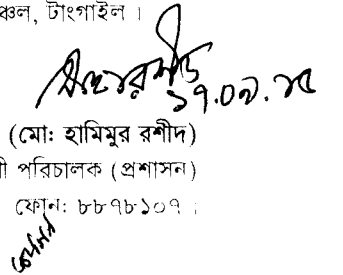 ঞ্চল, টাংগাইল ।
১৭.০৯.১৫
(মোঃ হামিমুর রশীদ)
ী পরিচালক (প্রশাসন)
ফোন: ৮৮৭৮১০৭ ।